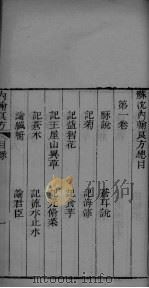 蘇沈內翰良方總目
第一卷
脉說　蒼耳說
記菊　記海漆
記益智花　記食芋
記王屋山異草　記元脩菜
記蒼朮　記流水止水
論臟腑　論君臣
內翰良方　目錄　一